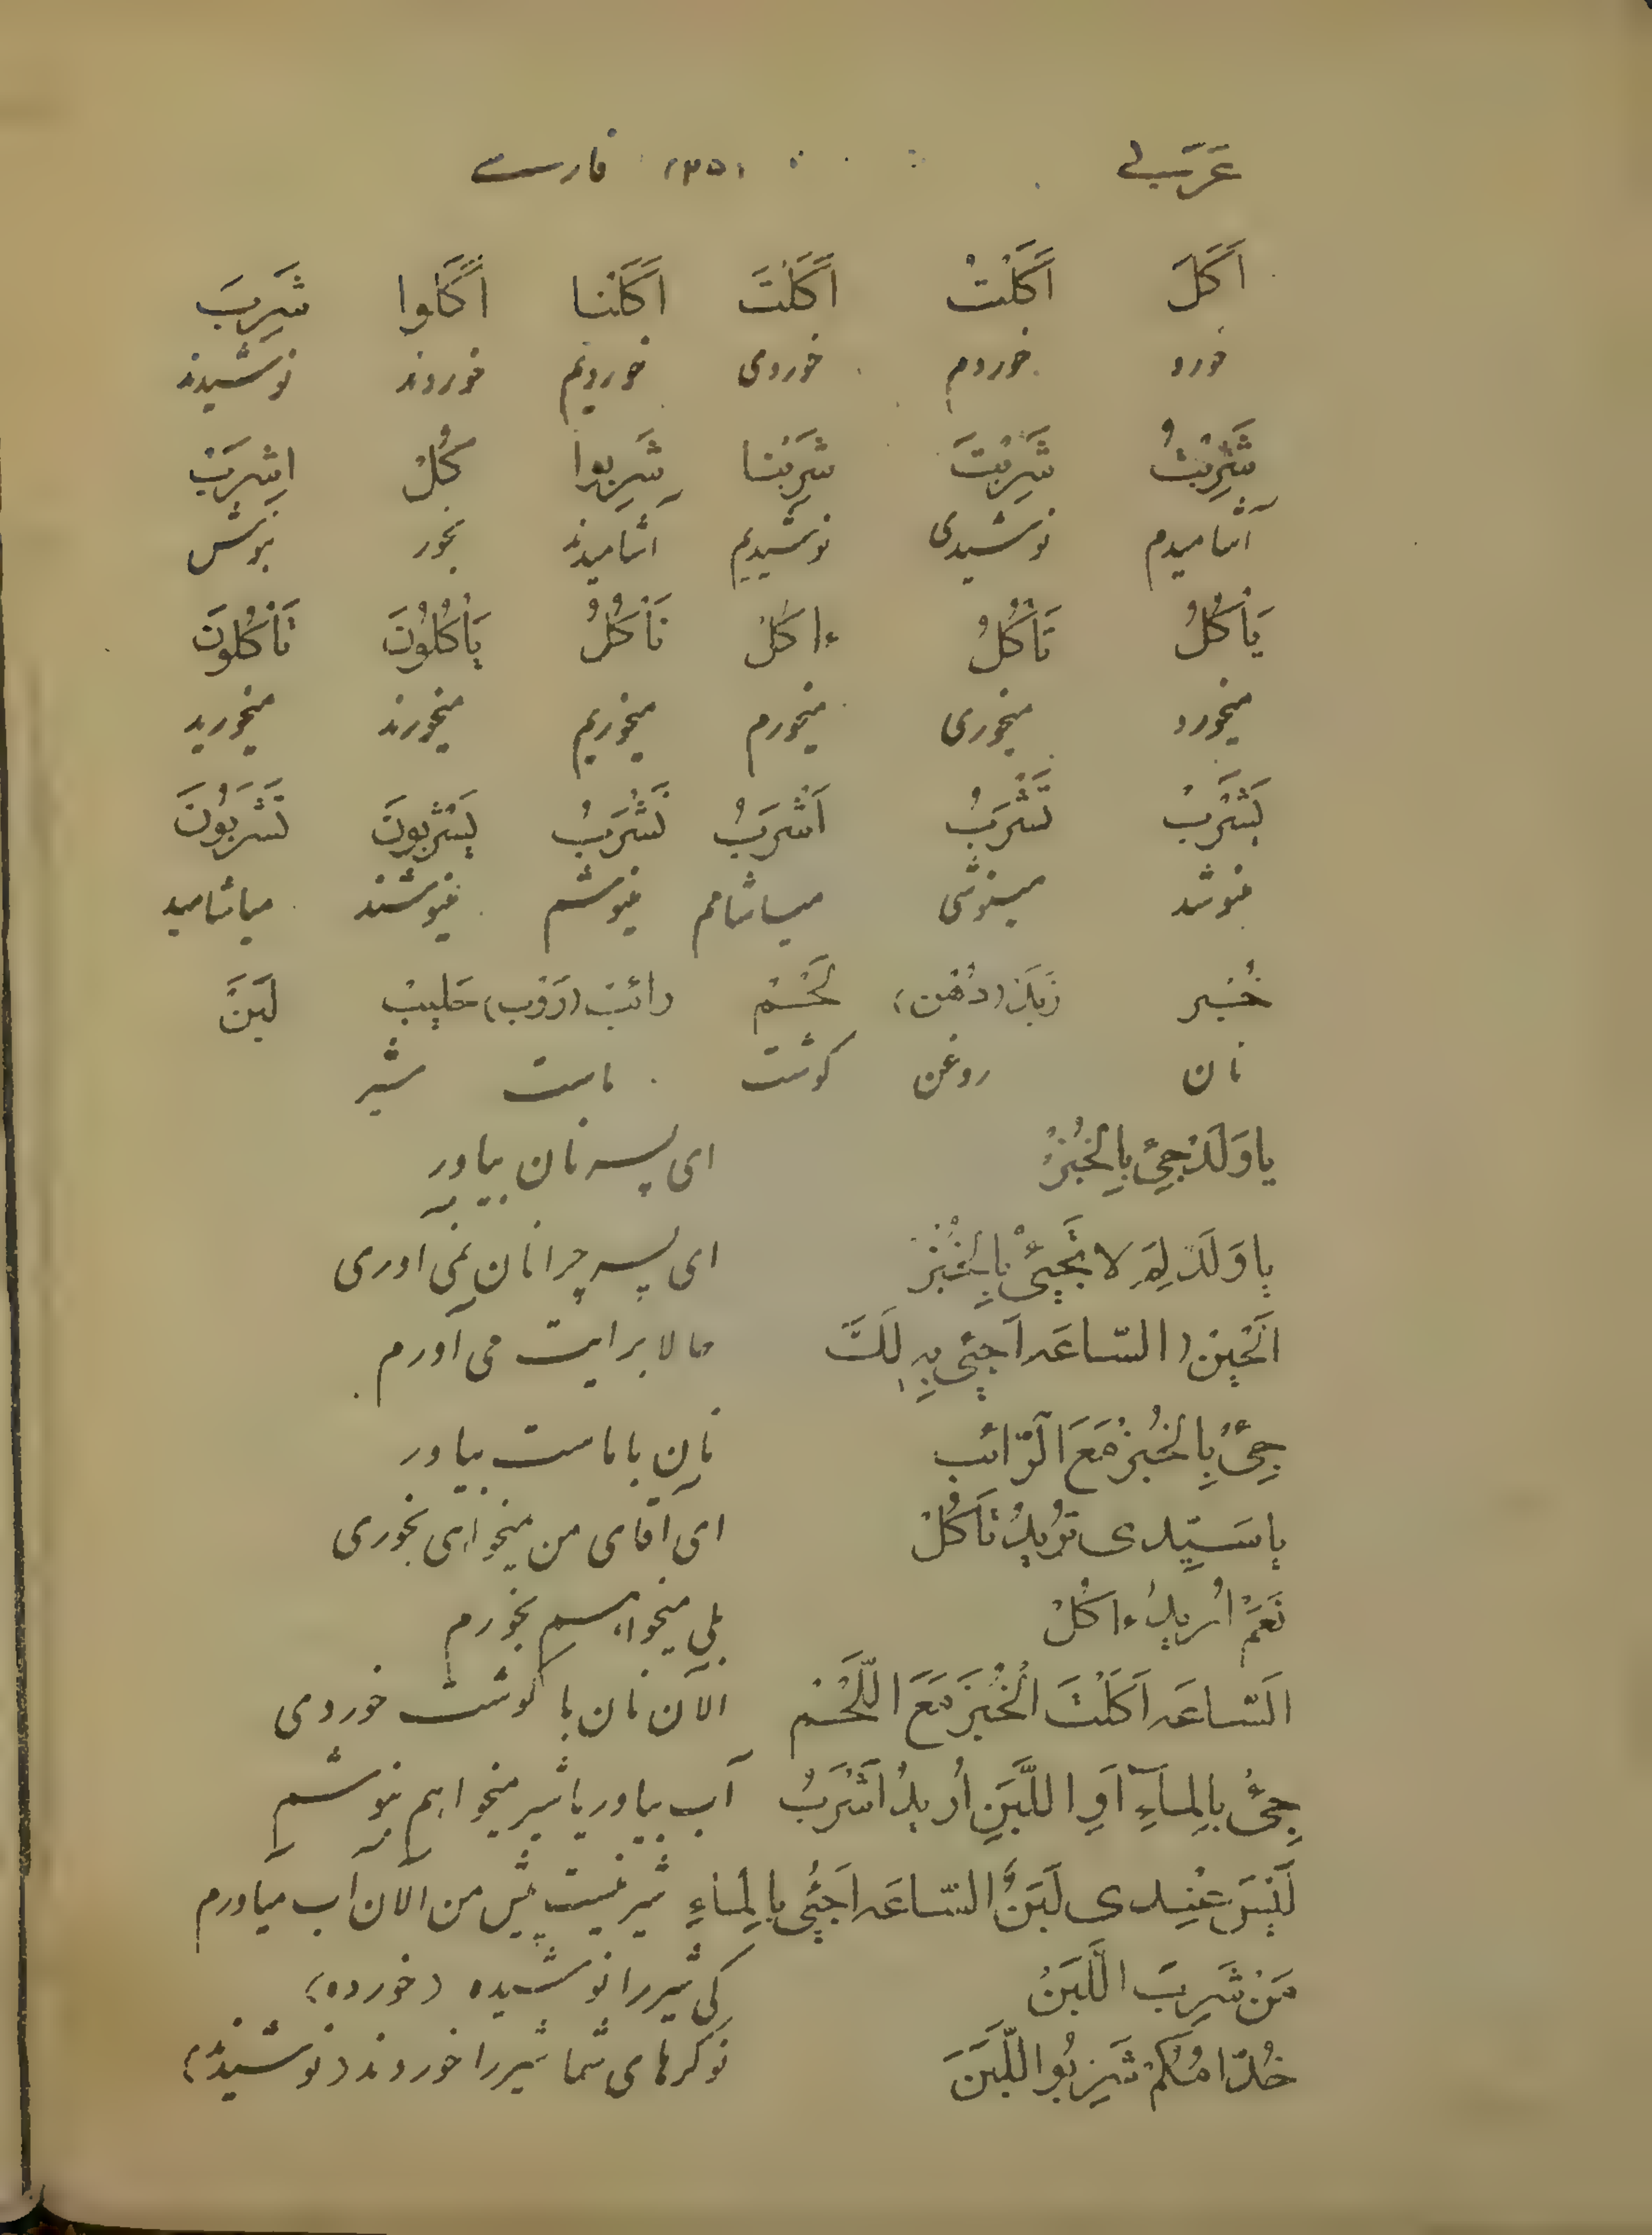 عَرَبی (٣٥) فارسی
اَکَلَ اَکَلْتُ اَکَلْتَ اَکَلْنا اَکَلوا شَرِبَ
خورد خوردم خوردی خوردیم خوردند نوشیدند
شَرِبْتُ شَرِبْتَ شَرِبْنا شَرِبوا کُلْ اِشْرَبْ
آشامیدم نوشیدی نوشیدیم آشامیدند بخور بنوش
یَأْکُلُ تَأْکُلُ ءاکُلُ نَأْکُلُ یَأْکُلُونَ تَأْکُلونَ
میخورد میخوری میخورم میخوریم میخورند میخورید
یَشْرَبُ تَشْرَبُ اَشْرَبُ نَشْرَبُ یَشْرَبونَ تَشْرَبُونَ
مینوشد مینوشی میاشامم مینوشیم مینوشند میاشامید
خُبْز (دُهْن) لَحْمْ رائِبْ (رَوْب) حَلیبْ لَبَنْ
نان روغن گوشت ماست شیر
یا وَلَدْ جِئْ بِالْخُبْزْ ای پسر نان بیاور
یا وَلَدْ لِمَ لا تَجیئْ بِالْخُبْزْ ای پسر چرا نان نمی اوری
اَلْحینْ (السّاعَه اَجیئُ بِهِ لَکَ حالا برایت می آورم
جِئْ بِالْخُبْزْ مَعَ الرّائب نان با ماست بیاور
یا سَیِّدی تُریدُ تَأکُلْ ای آقای من میخواهی بخوری
نَعَمْ اُریدُ ءاکُلْ بلی میخواهم بخورم
اَلسّاعَه اَکَلْتَ الْخُبْزَ مَعَ اللَّحْمْ الآن نان با گوشت خوردی
جِئْ بِالماَءِ اَوِ اللَّبَنِ اُریدُ اَشْرَبُ آب بیاور یا شیر میخواهم بنوشم
لَیْسَ عِنْدی لَبَنٌ السّاعَه اَجیئُ بِالْماءِ شیر نیست پیش من الان آب میاورم
مَنْ شَرِبَ اللَّبَنْ کی شیر را نوشیده (خورده)
خُدّامُکُمْ شَرِبُوا اللَّبَنَ نوکرهای شما شیر را خوردند (نوشیدند)